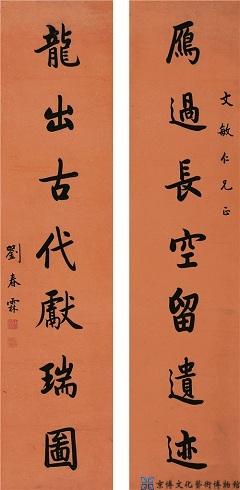 文敏仁兄正
鴈過長空留遺迹
龍出古代獻瑞圖
劉春霖
京博文化藝術博物館